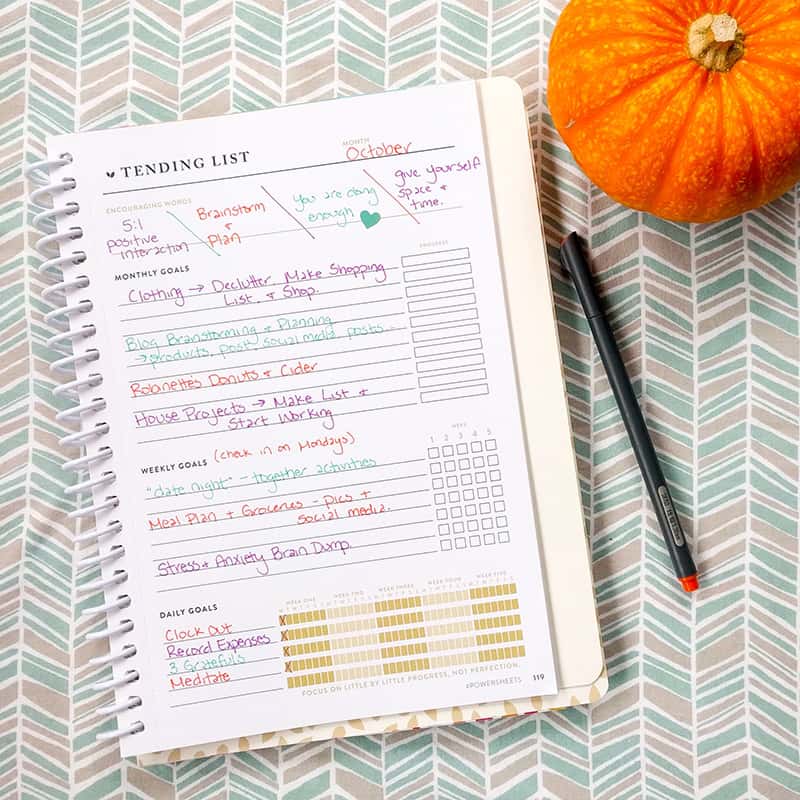 TENDING LIST
MONTH
October
ENCOURAGING WORDS
5:1
positive
interaction
Brainstorm
+
Plan
You are doing
enough
give yourself
space +
time.
MONTHLY GOALS
PROGRESS
Clothing → Declutter, Make Shopping
List, & Shop.
Blog Brainstorming + Planning
→ products, post, social media posts
Robinette's Donuts + Cider
House Projects → Make List +
Start Working
WEEKLY GOALS (check in on Mondays)
WEEK
1 2 3 4 5
"date night" - together activities
Meal Plan + Groceries - pics +
social media.
Stress + Anxiety Brain Dump.
DAILY GOALS
WEEK ONE WEEK TWO WEEK THREE WEEK FOUR WEEK FIVE
Clock Out
Record Expenses
3 Gratefuls
Meditate
FOCUS ON LITTLE BY LITTLE PROGRESS, NOT PERFECTION.
#POWERSHEETS 119